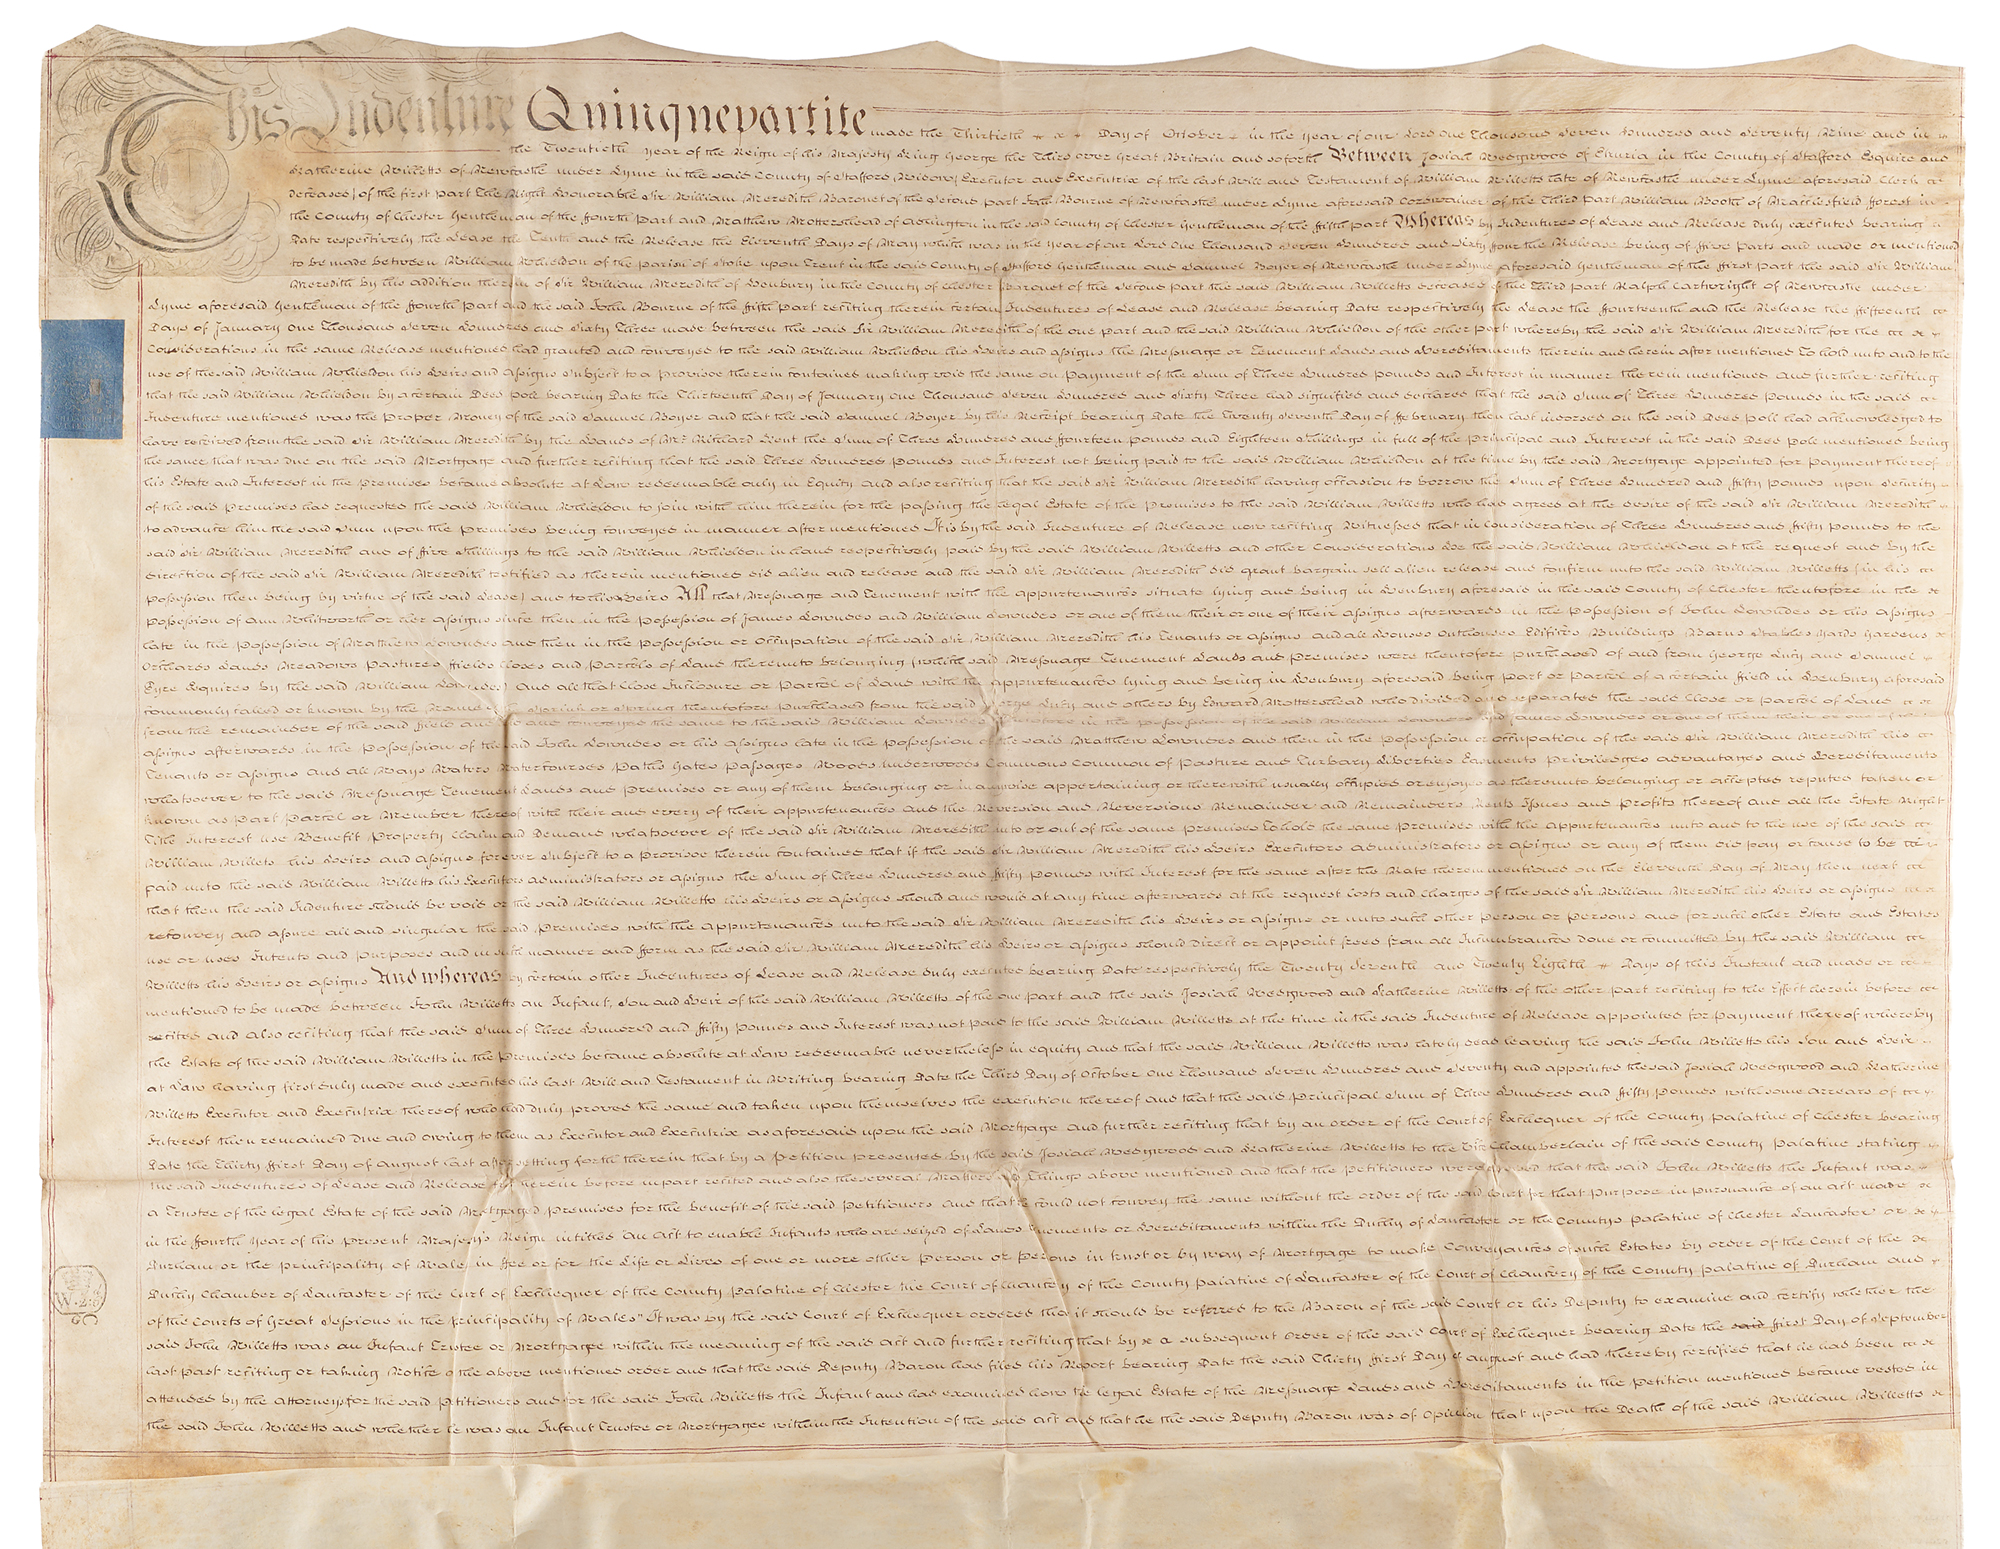 This Indenture Quinquepartite made the Thirtieth Day of October in the Year of our Lord One Thousand Seven Hundred and Seventy Nine and in
the Twentieth Year of the Reign of his Majesty King George the Third over Great Britain and so forth Between Josiah Wedgwood of Etruria in the County of Stafford Esquire and
Katherine Willetts of Newcastle under Lyme in the said County of Stafford Widow (Executor and Executrix of the last Will and Testament of William Willetts late of Newcastle under Lyme aforesaid Clerk
deceased) of the first part The Right Honorable Sir William Meredith Baronet of the Second part John Bourne of Newcastle under Lyme aforesaid Cordwainer of the Third Part William Booth of Macclesfield fforest in
the County of Chester Gentleman of the ffourth Part and Matthew Mottershead of Adlington in the said County of Chester Gentleman of the ffifth part Whereas by Indentures of Lease and Release duly executed bearing
Date respectively the Lease the Tenth and the Release the Eleventh Days of May which was in the Year of our Lord One Thousand Seven Hundred and Sixty ffour the Release being of ffive Parts and made or mentioned
to be made between William Whieldon of the Parish of Stoke upon Trent in the said County of Stafford Gentleman and Samuel Boyer of Newcastle under Lyme aforesaid Gentleman of the ffirst part the said Sir William
Meredith by the addition therein of Sir William Meredith of Henbury in the County of Chester Baronet of the Second part the said William Willetts deceased of the Third part Ralph Cartwright of Newcastle under
Lyme aforesaid Gentleman of the ffourth Part and the said John Bourne of the ffifth part reciting therein certain Indentures of Lease and Release bearing Date respectively the Lease the ffourteenth and the Release the ffifteenth
Days of January One Thousand Seven Hundred and Sixty Three made between the said Sir William Meredith of the one Part and the said William Whieldon of the other part whereby the said Sir William Meredith for the
Considerations in the same Release mentioned had granted and conveyed to the said William Whieldon his Heirs and assigns the Messuage or Tenement Lands and Hereditaments therein and herein after mentioned To hold unto and to the
use of the said William Whieldon his Heirs and Assigns Subject to a Provisoe therein contained making void the same on Payment of the Sum of Three Hundred Pounds and Interest in manner therein mentioned And further reciting
that the said William Whieldon by a certain Deed Poll bearing Date the Thirteenth Day of January One Thousand Seven Hundred and Sixty Three had signified and declared that the said Sum of Three Hundred Pounds in the said
Indenture mentioned was the Proper Money of the said Samuel Boyer and that the said Samuel Boyer by his Receipt bearing Date the Twenty Seventh Day of ffebruary then last indorsed on the said Deed Poll had acknowledged to
have received from the said Sir William Meredith by the Hands of Mr. Richard Hent the Sum of Three Hundred and ffourteen Pounds and Eighteen Shillings in full of the Principal and Interest in the said Deed Poll mentioned being
the same that was due on the said Mortgage and further reciting that the said Three Hundred Pounds and Interest not being paid to the said William Whieldon at the time by the said Mortgage appointed for Payment thereof
his Estate and Interest in the Premises became absolute at Law redeemable only in Equity and also reciting that the said Sir William Meredith having occasion to borrow the Sum of Three Hundred and ffifty Pounds upon Security
of the said Premises had requested the said William Whieldon to join with him therein for the passing the legal Estate of the Premises to the said William Willetts who had agreed at the desire of the said Sir William Meredith
to advance him the said Sum upon the Premises being conveyed in manner after mentioned It is by the said Indenture of Release now reciting Witnessed that in Consideration of Three Hundred and ffifty Pounds to the
said Sir William Meredith and of ffive Shillings to the said William Whieldon in hand respectively paid by the said William Willetts and other Considerations He the said William Whieldon at the request and by the
direction of the said Sir William Meredith testified as therein mentioned did alien and release and the said Sir William Meredith did grant bargain sell alien release and confirm unto the said William Willetts (in his
Possession then being by virtue of the said Lease) and to his Heirs All that Messuage and Tenement with the appurtenances situate lying and being in Henbury aforesaid in the said County of Chester theretofore in the
Possession of Ann Whitworth or her assigns since then in the Possession of James Lowndes and William Lowndes or one of them their or one of their assigns afterwards in the Possession of John Lowndes or his assigns
late in the Possession of Matthew Lowndes and then in the Possession or Occupation of the said Sir William Meredith his Tenants or assigns and all Houses Outhouses Edifices Buildings Barns Stables Yards Gardens
Orchards Lands Meadows Pastures ffields Closes and Parcels of Land thereunto belonging (which said Messuage Tenement Lands and Premises were theretofore purchased of and from George Lucy and Samuel
Eyre Esquires by the said William Lowndes) and all that Close Inclosure or Parcel of Land with the appurtenances lying and being in Henbury aforesaid being Part or Parcel of a certain ffield in Henbury aforesaid
commonly called or known by the Name of theretofore purchased from the said George Lucy and others by Edward Mottershead who divided and separated the said Close or Parcel of Land
from the remainder of the said ffield and conveyed the same to the said William Lowndes theretofore in the Possession of the said William Lowndes and James Lowndes or one of them their or one of
assigns afterwards in the Possession of the said John Lowndes or his Assigns late in the Possession of the said Matthew Lowndes and then in the Possession or Occupation of the said Sir William Meredith his
Tenants or assigns and all Ways Waters Watercourses Paths Gates Passages Woods Underwoods Commons Common of Pasture and Turbary Liberties Easments Priviledges advantages and Hereditaments
whatsoever to the said Messuage Tenement Lands and Premises or any of them belonging or in anywise appertaining or therewith usually occupied or enjoyed as thereunto belonging or accepted reputed taken or
known as Part Parcel or Member thereof with their and every of their appurtenances and the Reversion and Reversions Remainder and Remainders Rents Issues and Profits thereof and all the Estate Right
Title Interest use Benefit Property Claim and Demand whatsoever of the said Sir William Meredith into or out of the same Premises To hold the same Premises with the appurtenances unto and to the use of the said
William Willetts his Heirs and assigns for ever Subject to a Provisoe therein contained that if the said Sir William Meredith his Heirs Executors administrators or assigns or any of them did pay or cause to be
paid unto the said William Willetts his Executors administrators or assigns the Sum of Three Hundred and ffifty Pounds with Interest for the same after the Rate therein mentioned on the Eleventh Day of May then next
that then the said Indenture should be void or the said William Willetts his Heirs or assigns should and would at any time afterwards at the request costs and charges of the said Sir William Meredith his Heirs or assigns
reconvey and assure all and singular the said Premises with the appurtenances unto the said Sir William Meredith his Heirs or assigns or unto such other Person or Persons and for such other Estate and Estates
use or uses Intents and purposes and in such manner and fform as the said Sir William Meredith his Heirs or assigns should direct or appoint freed from all Incumbrances done or committed by the said William
Willetts his Heirs or assigns And whereas by certain other Indentures of Lease and Release duly executed bearing Date respectively the Twenty Seventh and Twenty Eighth Days of this Instant and made or
mentioned to be made between John Willetts an Infant, Son and Heir of the said William Willetts of the one part and the said Josiah Wedgwood and Katherine Willetts of the other part reciting to the Effect herein before
recited and also reciting that the said Sum of Three Hundred and ffifty Pounds and Interest was not paid to the said William Willetts at the time in the said Indenture of Release appointed for payment thereof whereby
the Estate of the said William Willetts in the Premises became absolute at Law redeemable nevertheless in equity and that the said William Willetts was lately dead leaving the said John Willetts his Son and Heir
at Law having first duly made and executed his last Will and Testament in Writing bearing Date the Third Day of October One Thousand Seven Hundred and Seventy and appointed the said Josiah Wedgwood and Katherine
Willetts Executor and Executrix thereof who had duly proved the same and taken upon themselves the execution thereof and that the said Principal Sum of Three Hundred and ffifty Pounds with some arrears of
Interest then remained due and owing to them as Executor and Executrix as aforesaid upon the said Mortgage and further reciting that by an order of the Court of Exchequer of the County Palatine of Chester bearing
Date the Thirty ffirst Day of August last past setting forth therein that by a Petition presented by the said Josiah Wedgwood and Katherine Willetts to the Vice Chamberlain of the said County Palatine stating
the said Indentures of Lease and Release herein before in part recited and also the several Matters and Things above mentioned and that the Petitioners were advised that the said John Willetts the Infant was
a Trustee of the legal Estate of the said Mortgaged Premises for the benefit of the said Petitioners and that he could not convey the same without the order of the said Court for that Purpose in pursuance of an act made
in the ffourth Year of his present Majesty's Reign intitled "An Act to enable Infants who are seized of Lands Tenements or Hereditaments within the Dutchy of Lancaster or the Countys Palatine of Chester Lancaster or
Durham or the Principality of Wales in ffee or for the Life or Lives of one or more other Person or Persons in trust or by way of Mortgage to make Conveyances of such Estates by order of the Court of the
Dutchy Chamber of Lancaster of the Court of Exchequer of the County Palatine of Chester the Court of Chancery of the County Palatine of Lancaster of the Court of Chancery of the County Palatine of Durham and
of the Courts of Great Sessions in the Principality of Wales" It was by the said Court of Exchequer ordered that it should be referred to the Baron of the said Court or his Deputy to examine and certify whether the
said John Willetts was an Infant Trustee or Mortgagee within the meaning of the said act and further reciting that by a subsequent Order of the said Court of Exchequer bearing Date the said ffirst Day of September
last past reciting or taking Notice of the above mentioned order and that the said Deputy Baron had filed his Report bearing Date the said Thirty ffirst Day of August and had thereby certified that he had been
attended by the Attorneys for the said Petitioners and for the said John Willetts the Infant and had examined how the legal Estate of the Messuage Lands and Hereditaments in the Petition mentioned became vested in
the said John Willetts and whether he was an Infant Trustee or Mortgagee within the Intention of the said Act and that he the said Deputy Baron was of Opinion that upon the Death of the said William Willetts